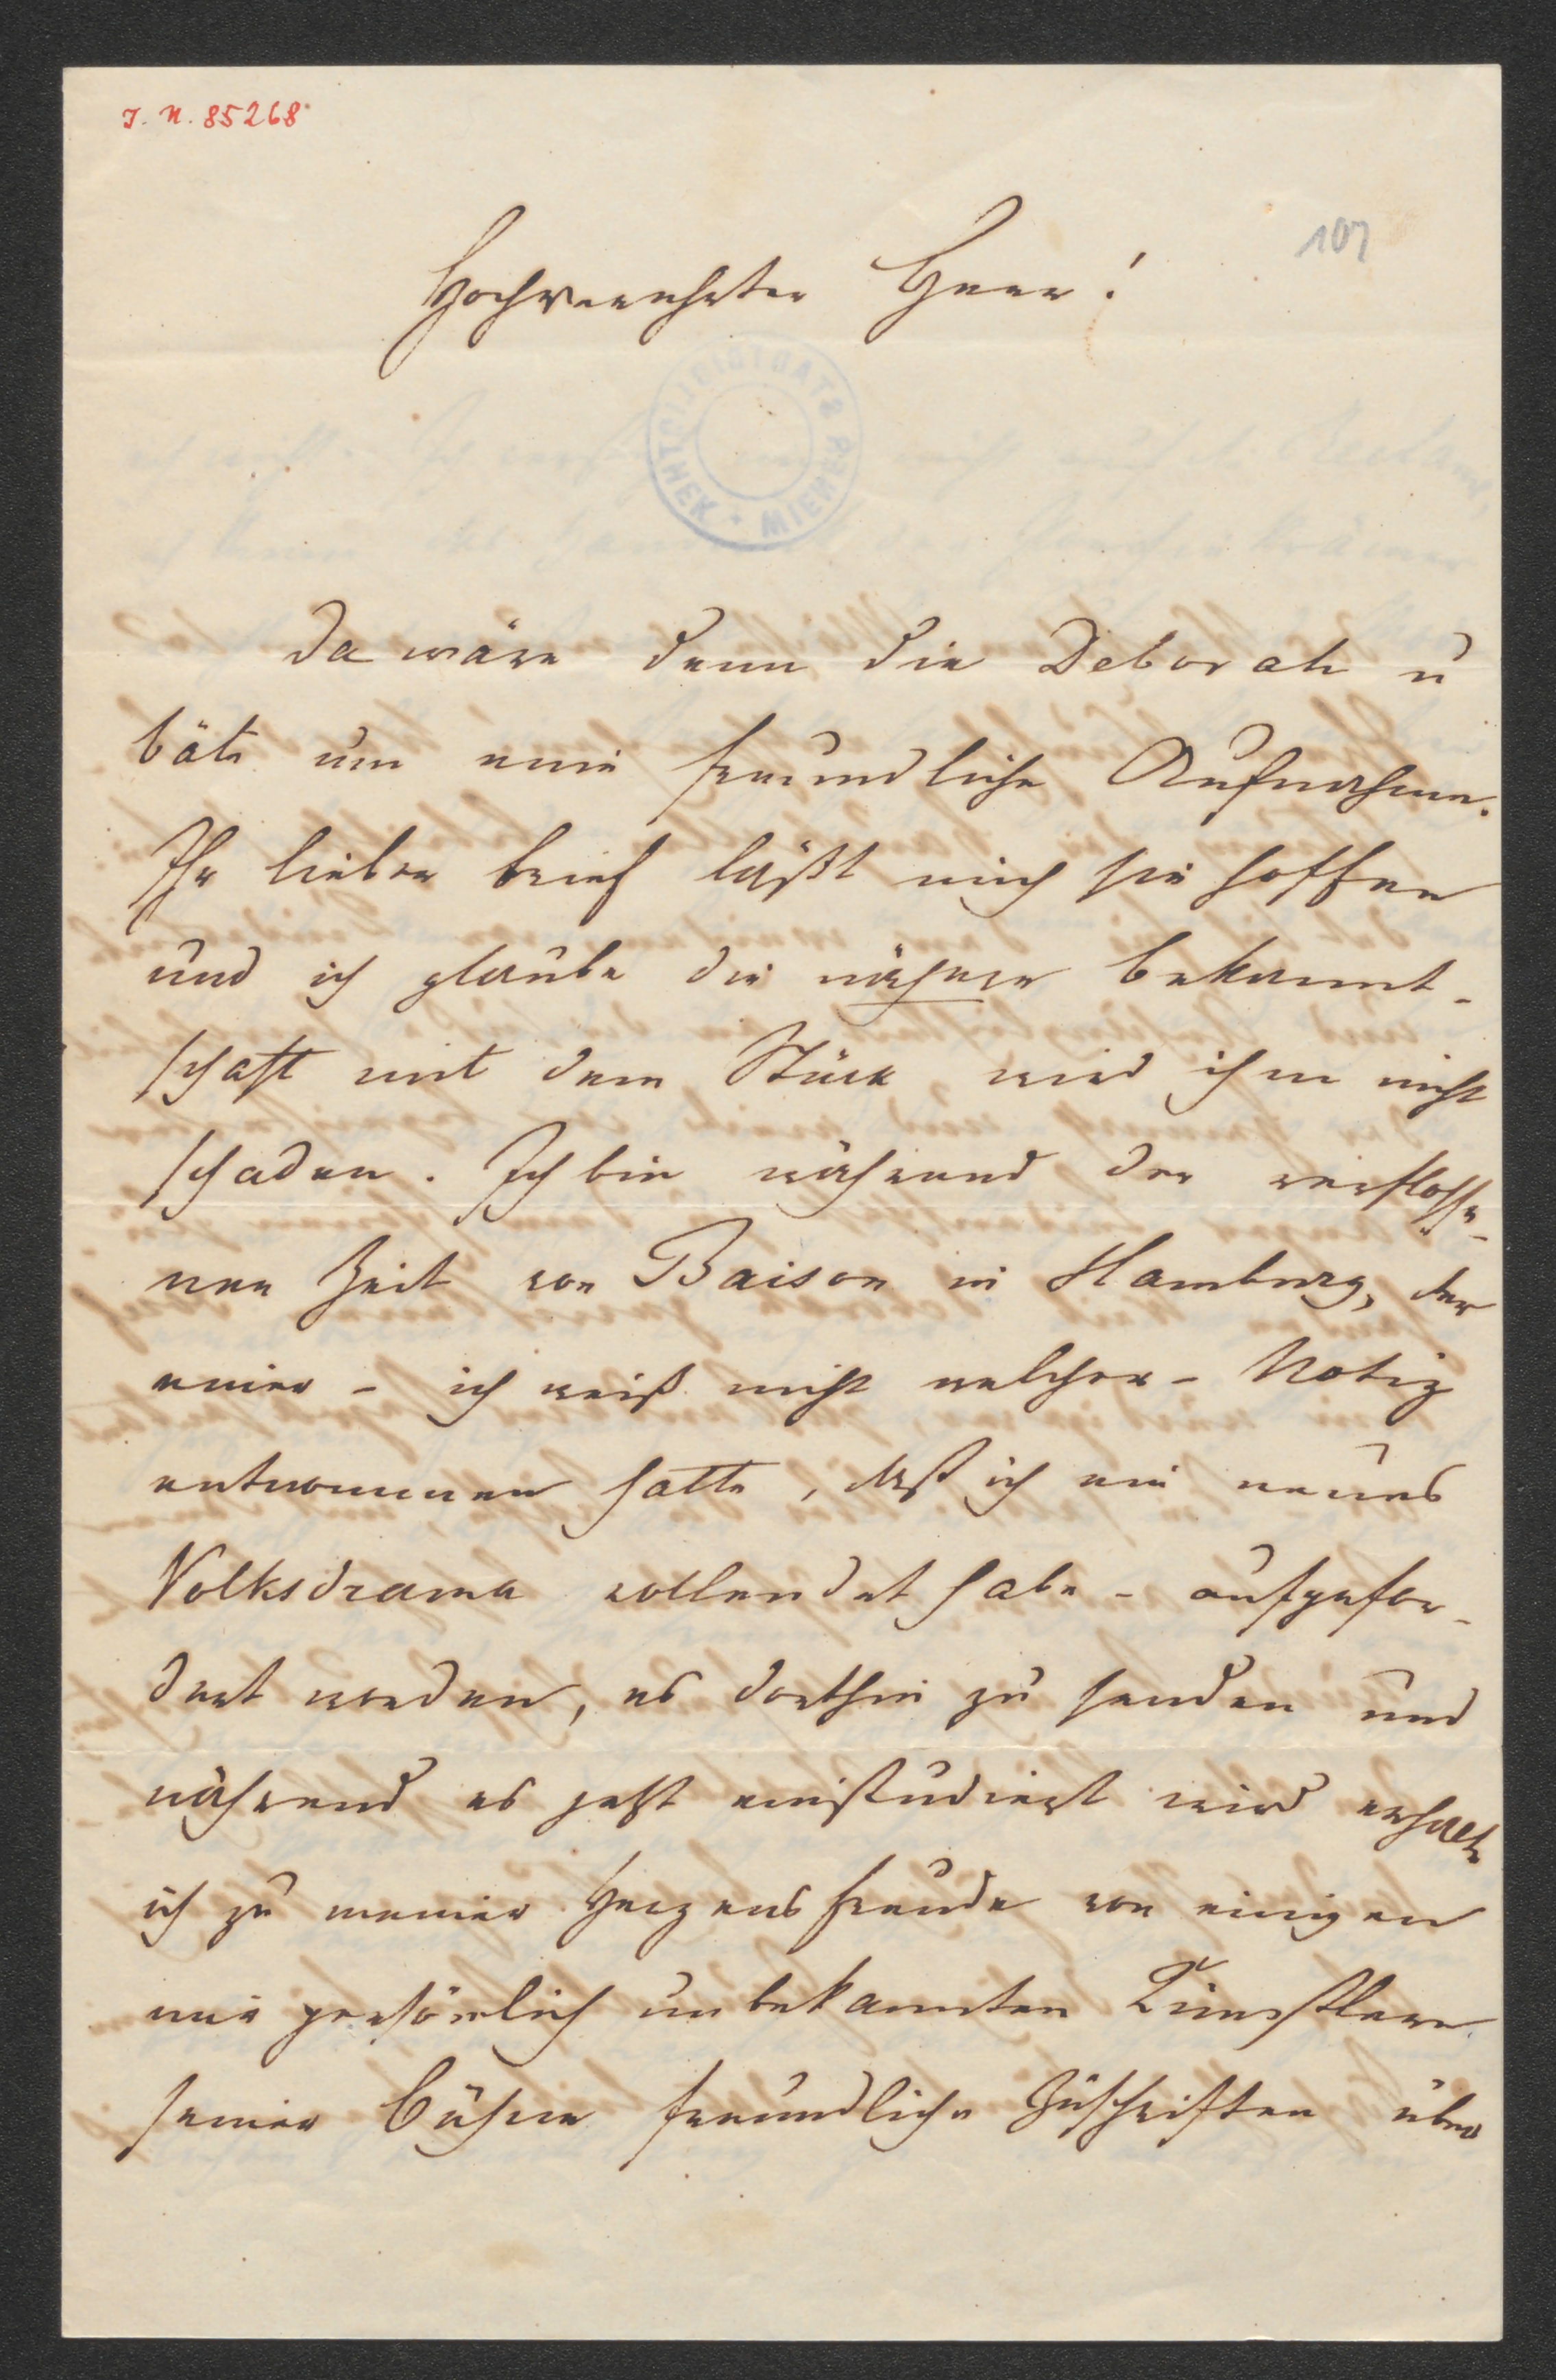 I. N. 85268
107
Hochverehrter Herr!
STADTBIBLIOTHEK • WIENER
Da wäre denn die Deborah u
bäte um eine freundliche Aufnahme.
Ihr lieber Brief läßt mich sie hoffen
und ich glaube die nähere Bekannt-
schaft mit dem Stück wird ihm nicht
schaden. Ich bin während der verflosse-
nen Zeit von Baison in Hamburg, der
einer – ich weiß nicht welcher – Notiz
entnommen hatte, daß ich ein neues
Volksdrama vollendet habe – aufgefor-
dert worden, es dorthin zu senden und
während es jetzt einstudiert wird erhalte
ich zu meiner Herzensfreude von einigen
mir persönlich unbekannten Künstlern
seiner Bühne freundliche Zuschriften über